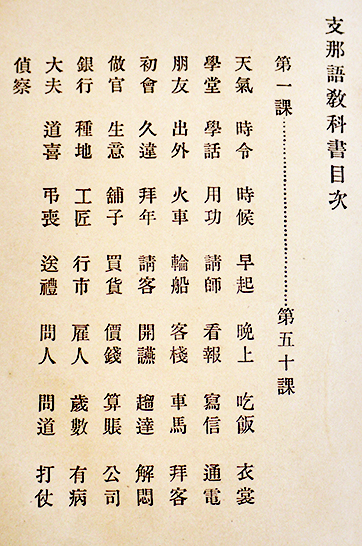 支那語敎科書目次
第一課……………………………第五十課
天氣 時令 時候 早起 晚上 吃飯 衣裳
學堂 學話 用功 請師 看報 寫信 通電
朋友 出外 火車 輪船 客棧 車馬 拜客
初會 久違 拜年 請客 開讌 趨達 解悶
做官 生意 舖子 買貨 價錢 算賬 公司
銀行 種地 工匠 行市 雇人 歲數 有病
大夫 道喜 弔喪 送禮 問人 問道 打仗
偵察